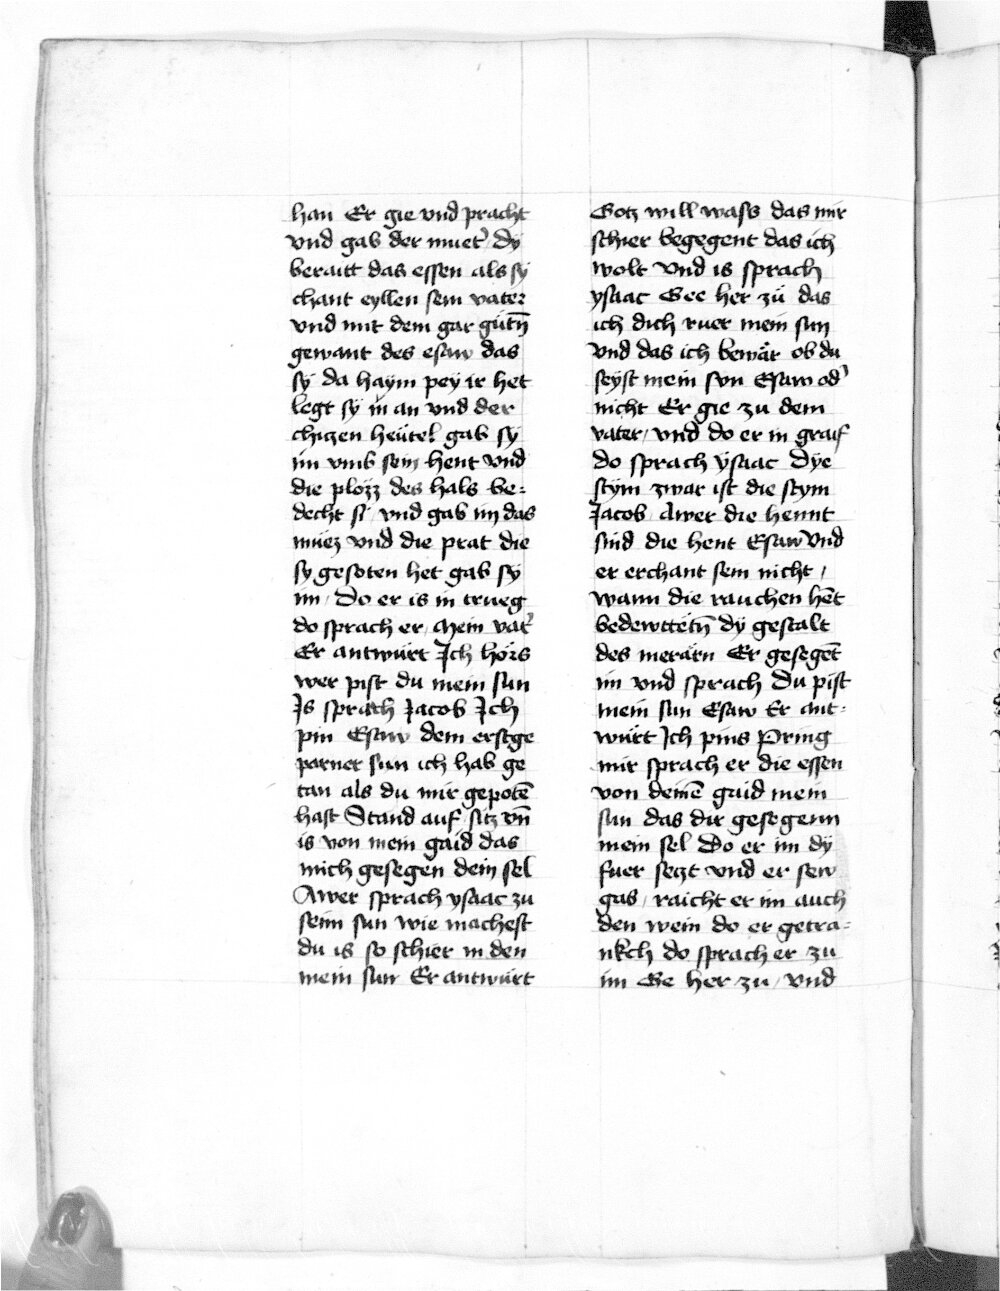 han Er gie vnd pracht
vnd gab der muet' dÿ
beraitt das essen als sÿ
chant eyllen sein vater
vnd mit dem gar gůtn̄
gewant des esaw das
sÿ da haÿm peÿ ir het
legt sÿ in an vnd der
chiczen heütel gab sÿ
im vmb sein hent vnd
die plözz des hals be-
decht si / vnd gab im das
můez vnd die prat die
sy gesoten het gab sÿ
im / Do er is in trueg
do sprach er / Mein vat'
Er antwürt Jch hörs
wer pist du mein sun
Js sprach Jacob Jch
pin Esaw dem erstge
parner sun ich hab ge
tan als du mir gepotē
hast Stand auf / sitz vn̄
is von mein gaid das
mich gesegen dein sel
Awer sprach ysaac zu
seim sun wie machest
du is so schier in den
mein sun Er antwürt
Gotz will wass das mir
schier begegent das ich
wolt Vnd is sprach
ysaac Gee her zů das
ich dich ruer mein sun
vnd das ich bewår ob du
seÿst mein son Esaw od'
nicht Er gie zu dem
vater / vnd do er in graif
do sprach ÿsaac Dÿe
stÿm zwar ist die stym
Jacob / Awer die hennt
sind die hent Esaw Vnd
er erchant sein nicht /
wann die rauchen hēt
bedewttētn̄ dÿ gestalt
des merårn Er gesegēt
im vnd sprach Du pist
mein sun Esaw Er ant-
würt Jch pins Pring
mir sprach er die essen
von deinē gaid mein
sun das dir gesegenn
mein sel Do er im dÿ
fuer seczt vnd er sew
gas / raicht er im auch
den wein do er getra-
nkch do sprach er zu
im Ge her zu / vnd